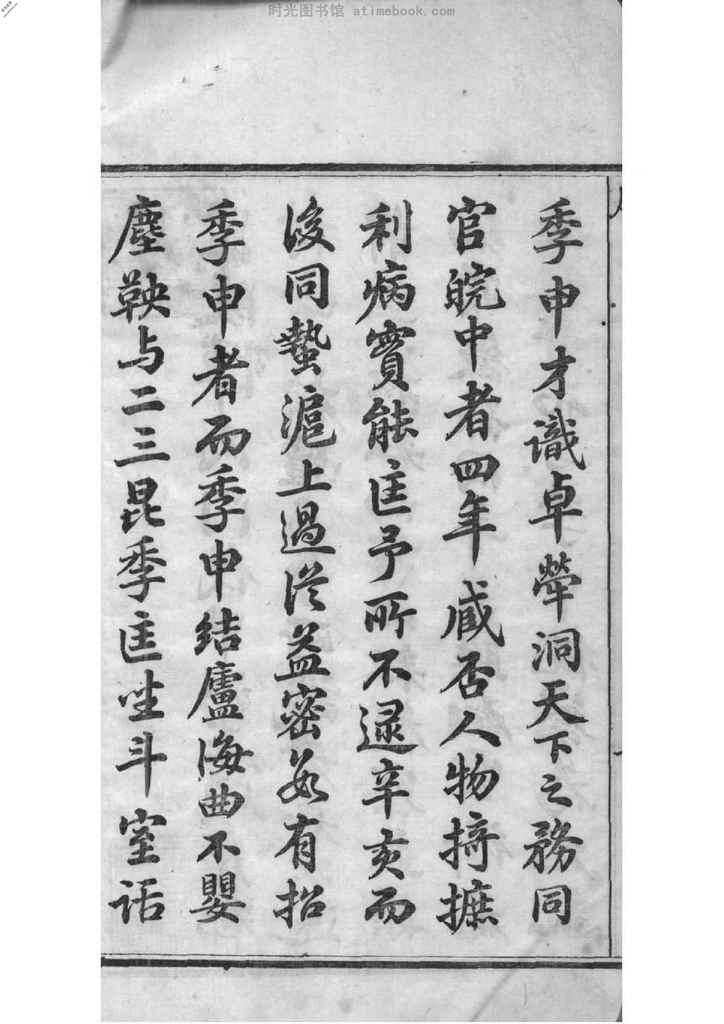 时光图书馆 atimebook.com
季申才識卓犖洞天下之務同
官皖中者四年臧否人物掎摭
利病實能匡予所不逮辛亥而
後同蟄滬上過從益密每有招
季申者而季申結廬海曲不嬰
塵鞅与二三昆季匡坐斗室話